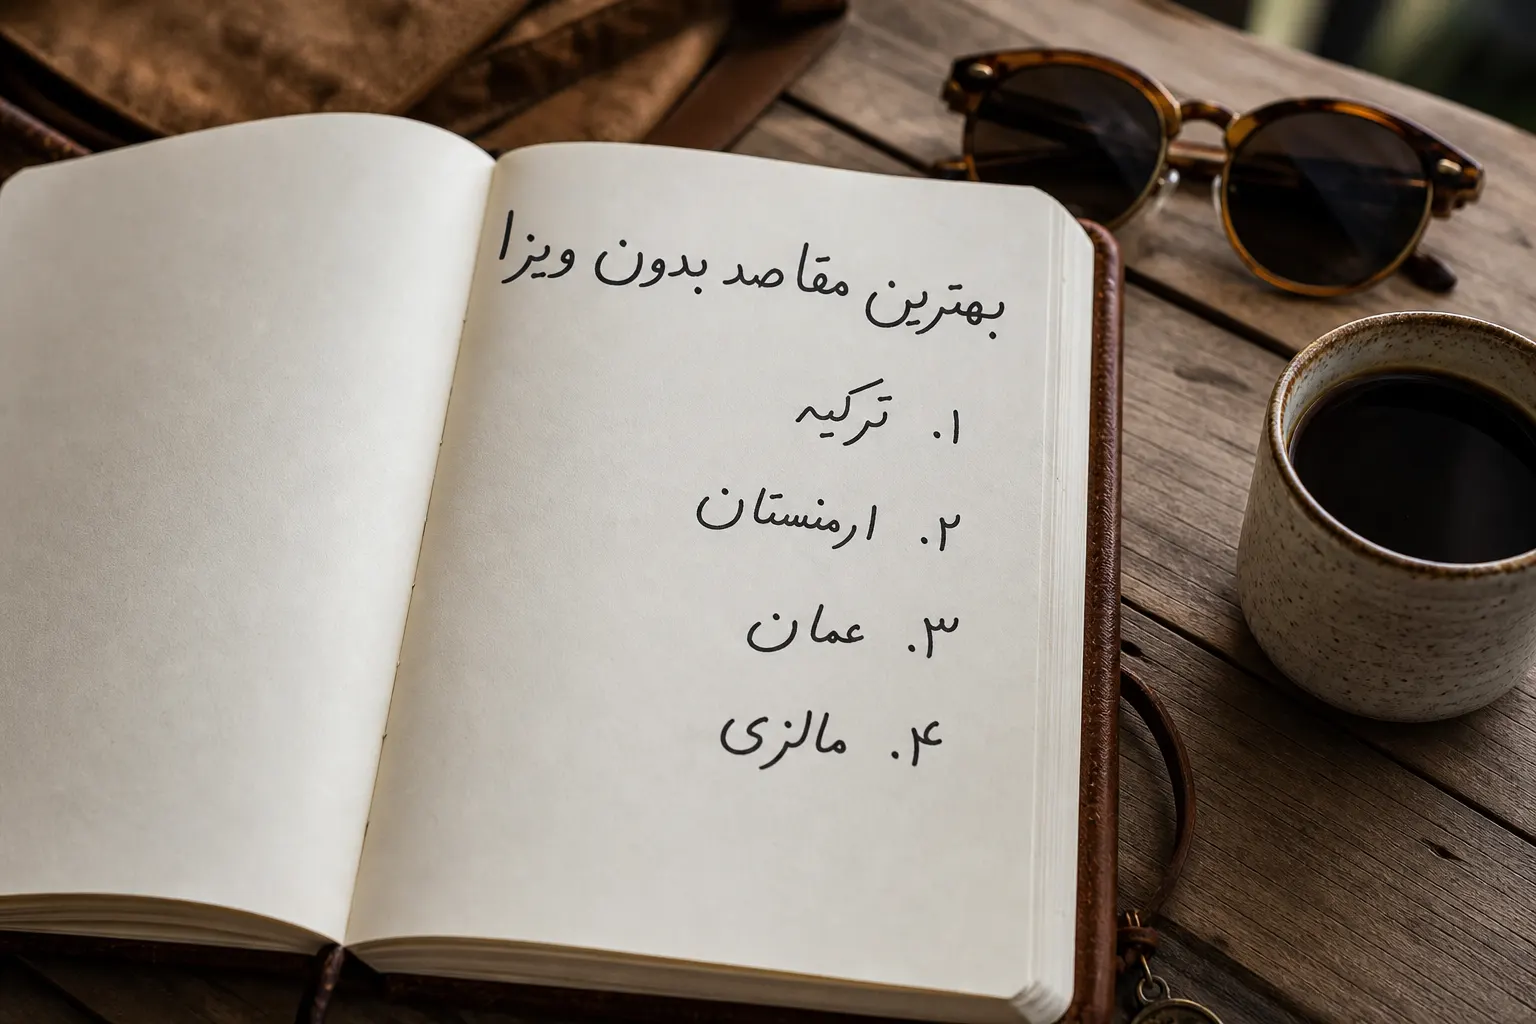 بهترین مقاصد بدون ویزا
۱. ترکیه
۲. ارمنستان
۳. عمان
۴. مالزی